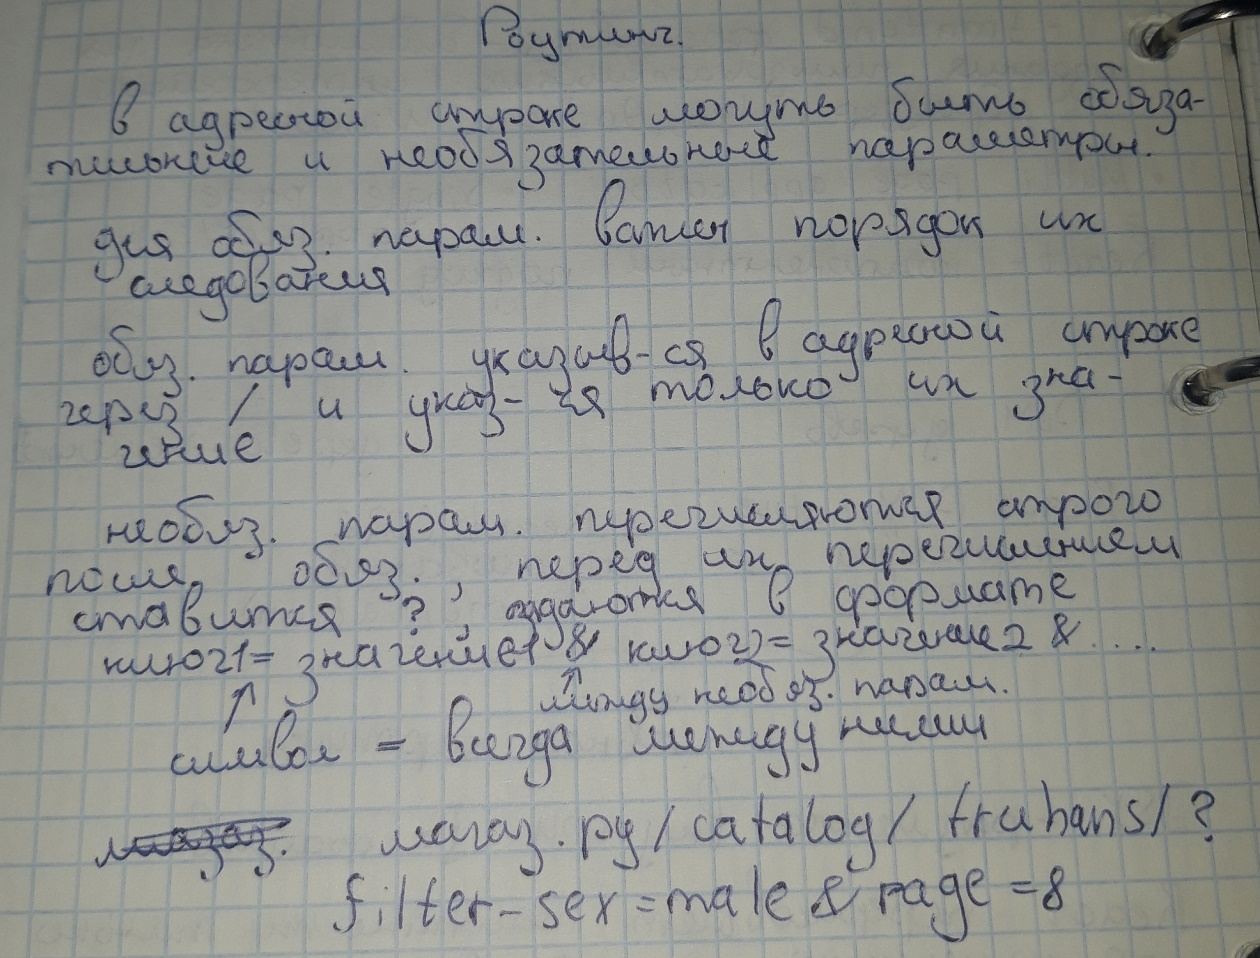 Роутинг.
В адресной строке могуть быть обяза-
тельные и необязательные параметры.
для обяз. парам. важен порядок их
следования
обяз. парам. указыв-ся в адресной строке
через / и указ-ся только их зна-
чение
необяз. парам. перечисляются строго
после обяз., перед их перечислением
ставится ?, задаются в формате
ключ1= значение1 & ключ2= значение2 & ....
↑ ↑
между необяз. парам.
символ = всегда между ними
магаз. ру/catalog/truhans/?
filter-sex=male & page =8